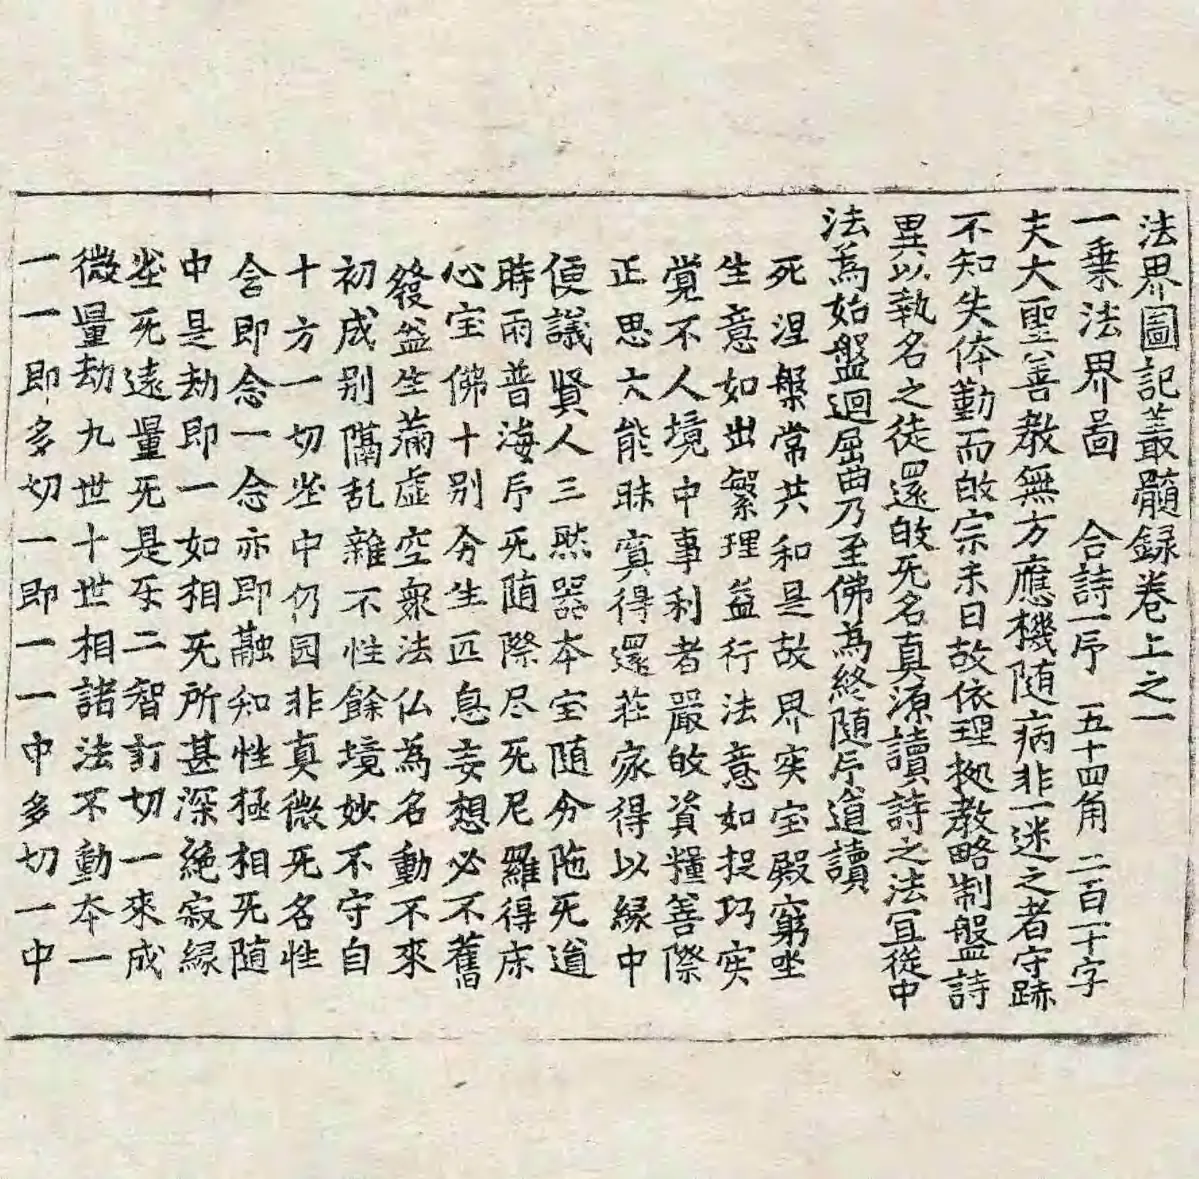 法界圖記叢髓録卷上之一
一乗法界啚 合詩一序 五十四角 二百一十字
夫大聖善教無方應機随病非一迷之者守跡
不知失体勤而敀宗未日故依理拠教略制盤詩
異以執名之徒還敀无名真源讀詩之法冝從中
法為始盤迴屈曲乃至佛為終随序道讀
死涅槃常共和是故界实宝殿窮坐
生意如出繁理益行法意如捉巧实
覺不人境中事利者嚴敀資糧善際
正思大能昧冥得還荘家得以縁中
便議賢人三然器本宝随分陁无道
時雨普海序无随際尽无尼羅得床
心宝佛十別分生叵息妄想必不舊
發益生滿虚空衆法仏為名動不來
初成別隔乱雜不性餘境妙不守自
十方一切尘中仍园非真微无名性
含即念一念亦即融知性極相无随
中是劫即一如相无所甚深絶寂縁
尘无遠量无是互二智訂切一來成
微量劫九世十世相諸法不動本一
一一即多切一即一一中多切一中